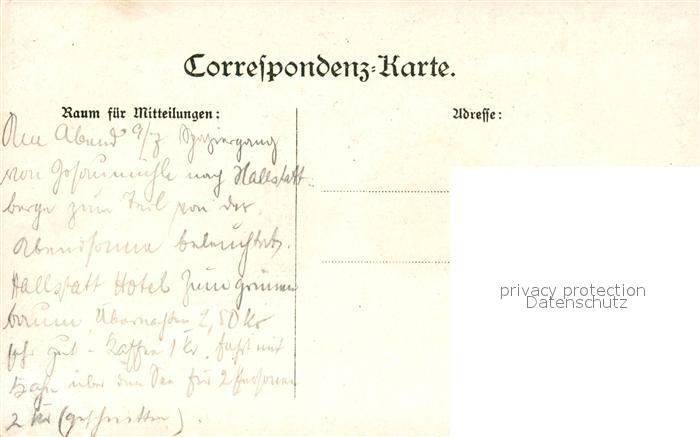 Correspondenz-Karte.
Raum für Mitteilungen:
Adresse:
Am Abend 9/7 Spaziergang
von Gosaumühle nach Hallstatt
berge zum Teil von der
Abendsonne beleuchtet.
Hallstatt Hotel zum grünen
baum, Übernachten 2,50 Kr
sehr gut - Kaffee 1 Kr. Fahrt mit
Kahn über den See für 2 Personen
2 Kr (geschnitten).
privacy protection
Datenschutz